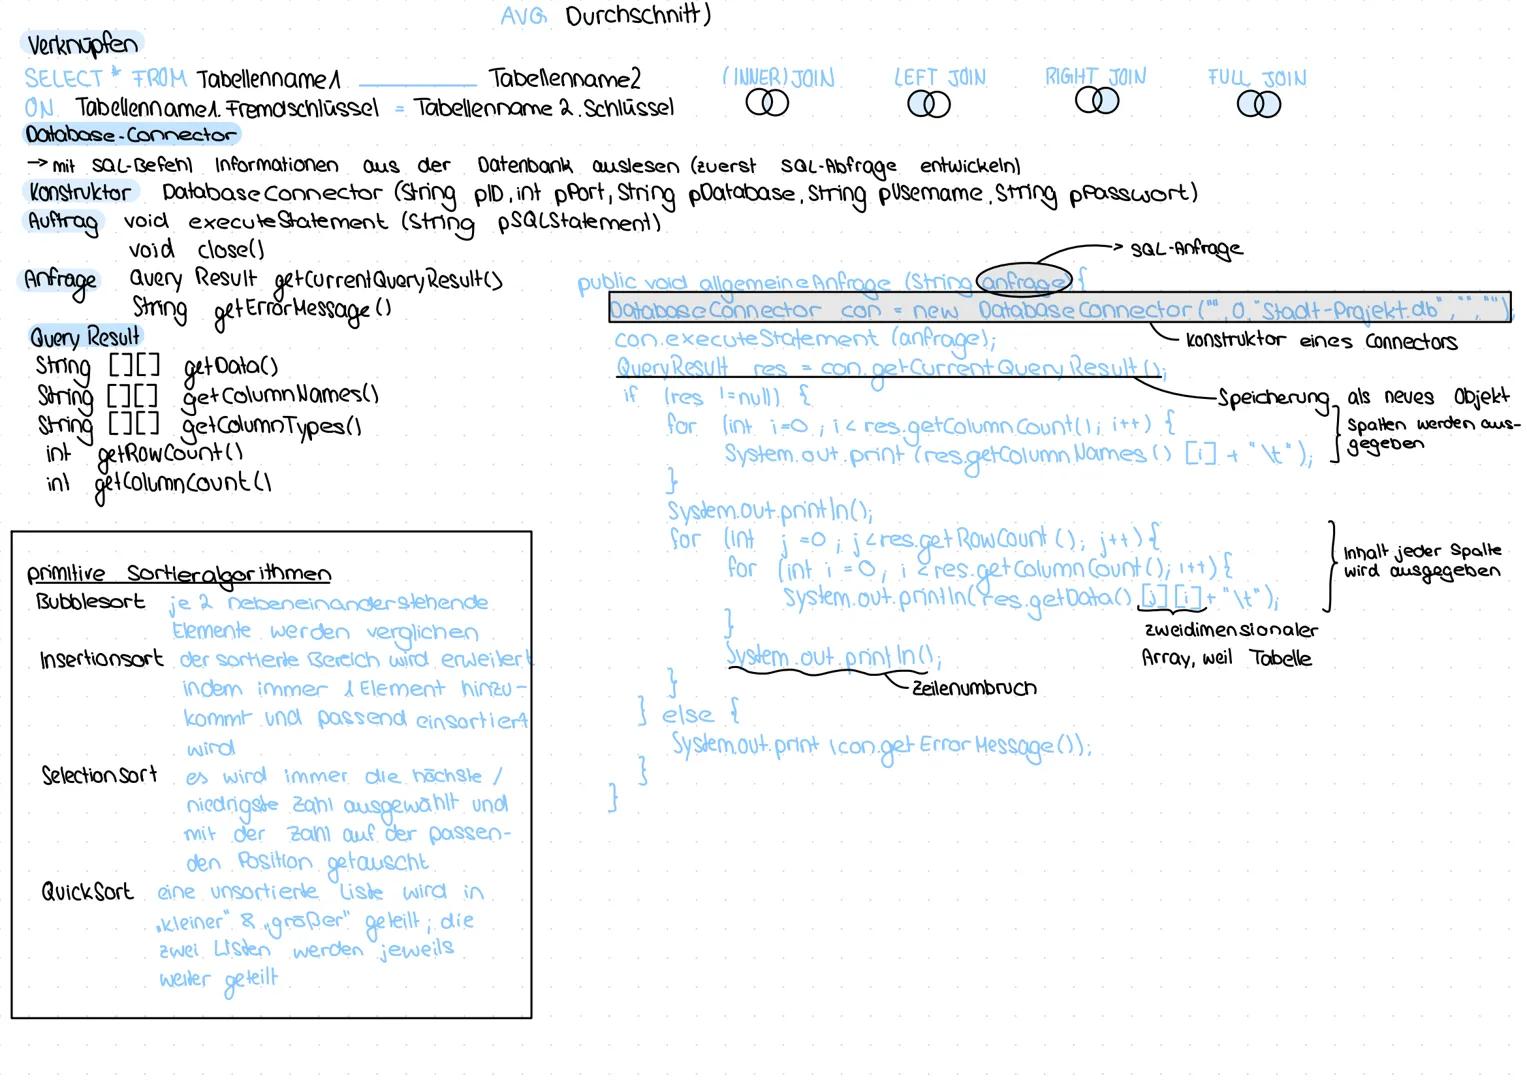 AVG Durchschnitt)
Verknüpfen
SELECT * FROM Tabellenname1 ________ Tabellenname2
ON Tabellenname1.Fremdschlüssel = Tabellenname2.Schlüssel
(INNER) JOIN LEFT JOIN RIGHT JOIN FULL JOIN
Database-Connector
→ mit SQL-Befehl Informationen aus der Datenbank auslesen (zuerst SQL-Abfrage entwickeln)
Konstruktor DatabaseConnector (String pID, int pPort, String pDatabase, String pUsername, String pPasswort)
Auftrag void executeStatement (String pSQLStatement)
void close()
Anfrage Query Result getCurrentQueryResult()
String getErrorMessage()
Query Result
String [][] getData()
String [][] getColumnNames()
String [][] getColumnTypes()
int getRowCount()
int getColumnCount()
primitive Sortieralgorithmen
Bubblesort je 2 nebeneinanderstehende
Elemente werden verglichen
Insertionsort der sortierte Bereich wird erweitert
indem immer 1 Element hinzu-
kommt und passend einsortiert
wird
Selectionsort es wird immer die höchste /
niedrigste Zahl ausgewählt und
mit der Zahl auf der passen-
den Position getauscht
QuickSort eine unsortierte Liste wird in
„kleiner" & „größer" geteilt; die
zwei Listen werden jeweils
weiter geteilt
→ SQL-Anfrage
public void allgemeineAnfrage (String anfrage) {
DatabaseConnector con = new DatabaseConnector ("", 0, "Stadt-Projekt.db", "", "");
Konstruktor eines Connectors
con.executeStatement (anfrage);
QueryResult res = con.getCurrentQueryResult();
Speicherung als neues Objekt
if (res !=null) {
for (int i=0; i< res.getColumnCount(); i++) {
System.out.print (res.getColumnNames() [i] + "\t");
}
Spalten werden aus-
gegeben
System.out.println();
for (int j=0; j<res.getRowCount(); j++) {
for (int i = 0; i <res.getColumnCount(); i++) {
System.out.println(res.getData() [j][i]+"\t");
}
Inhalt jeder Spalte
wird ausgegeben
zweidimensionaler
Array, weil Tabelle
System.out.println();
Zeilenumbruch
}
} else {
System.out.print (con.getErrorMessage());
}
}